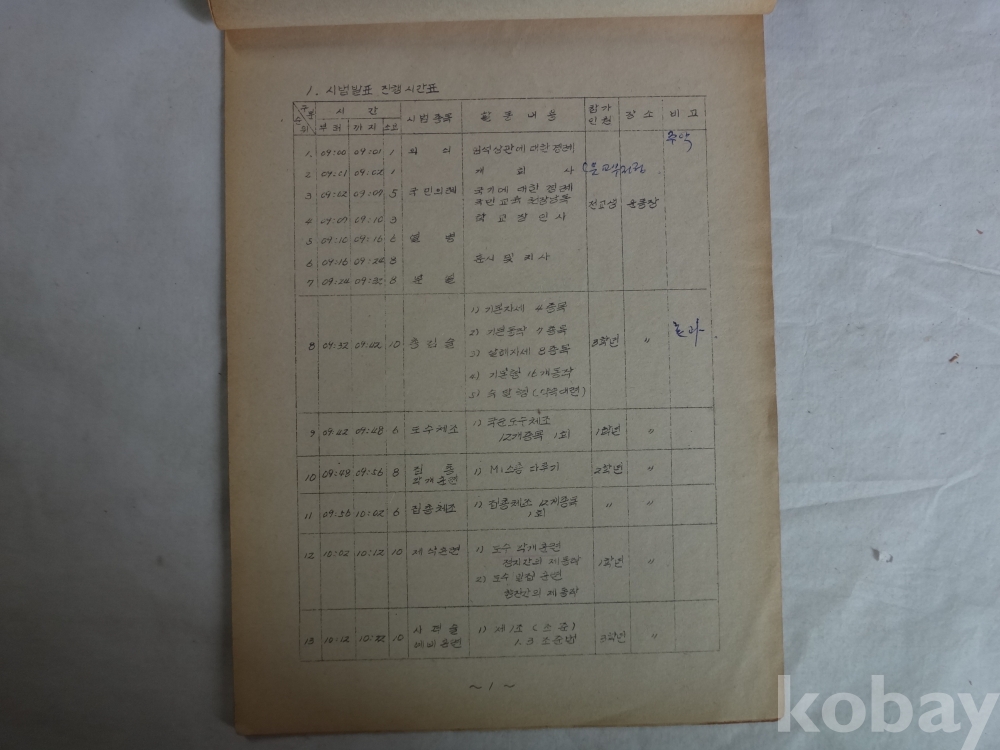 1. 시범발표 진행시간표
구분 순위 시 간 시범종목 활동내용 참가인원 장소 비고
부터 까지 소요
1. 09:00 09:01 1 임석상관에 대한 경례 주악
2 09:01 09:02 1 개 회 사
3 09:02 09:07 5 국민의례 국기에 대한 경례
국민교육헌장낭독 전교생 운동장
4 09:07 09:10 3 학교장인사
5 09:10 09:16 6 열 병
6 09:16 09:24 8 훈시 및
7 09:24 09:32 8 분 열
1) 기본자세 4종목
2) 기본동작 7종목
8 09:32 09:42 10 총검술 3학년 〃 효과
3) 8종목
4) 기본형 16개동작
5)
9 09:42 09:48 6 도수체조 1) 도수체조
12개종목 1회 1학년 〃
10 09:48 09:56 8 집총 1) M1소총 다루기 2학년 〃
각개훈련
11 09:56 10:02 6 집총체조 1) 집총체조 12개종목 〃 〃
1회
12 10:02 10:12 10 제식훈련 1) 도수 각개훈련
정지간의 제동작 1학년 〃
2) 도수
행진간의 제동작
13 10:12 10:22 10 사격술 1) 제1조 (조준)
예비훈련 1.3 조준법 3학년 〃
~ 1 ~
kobay